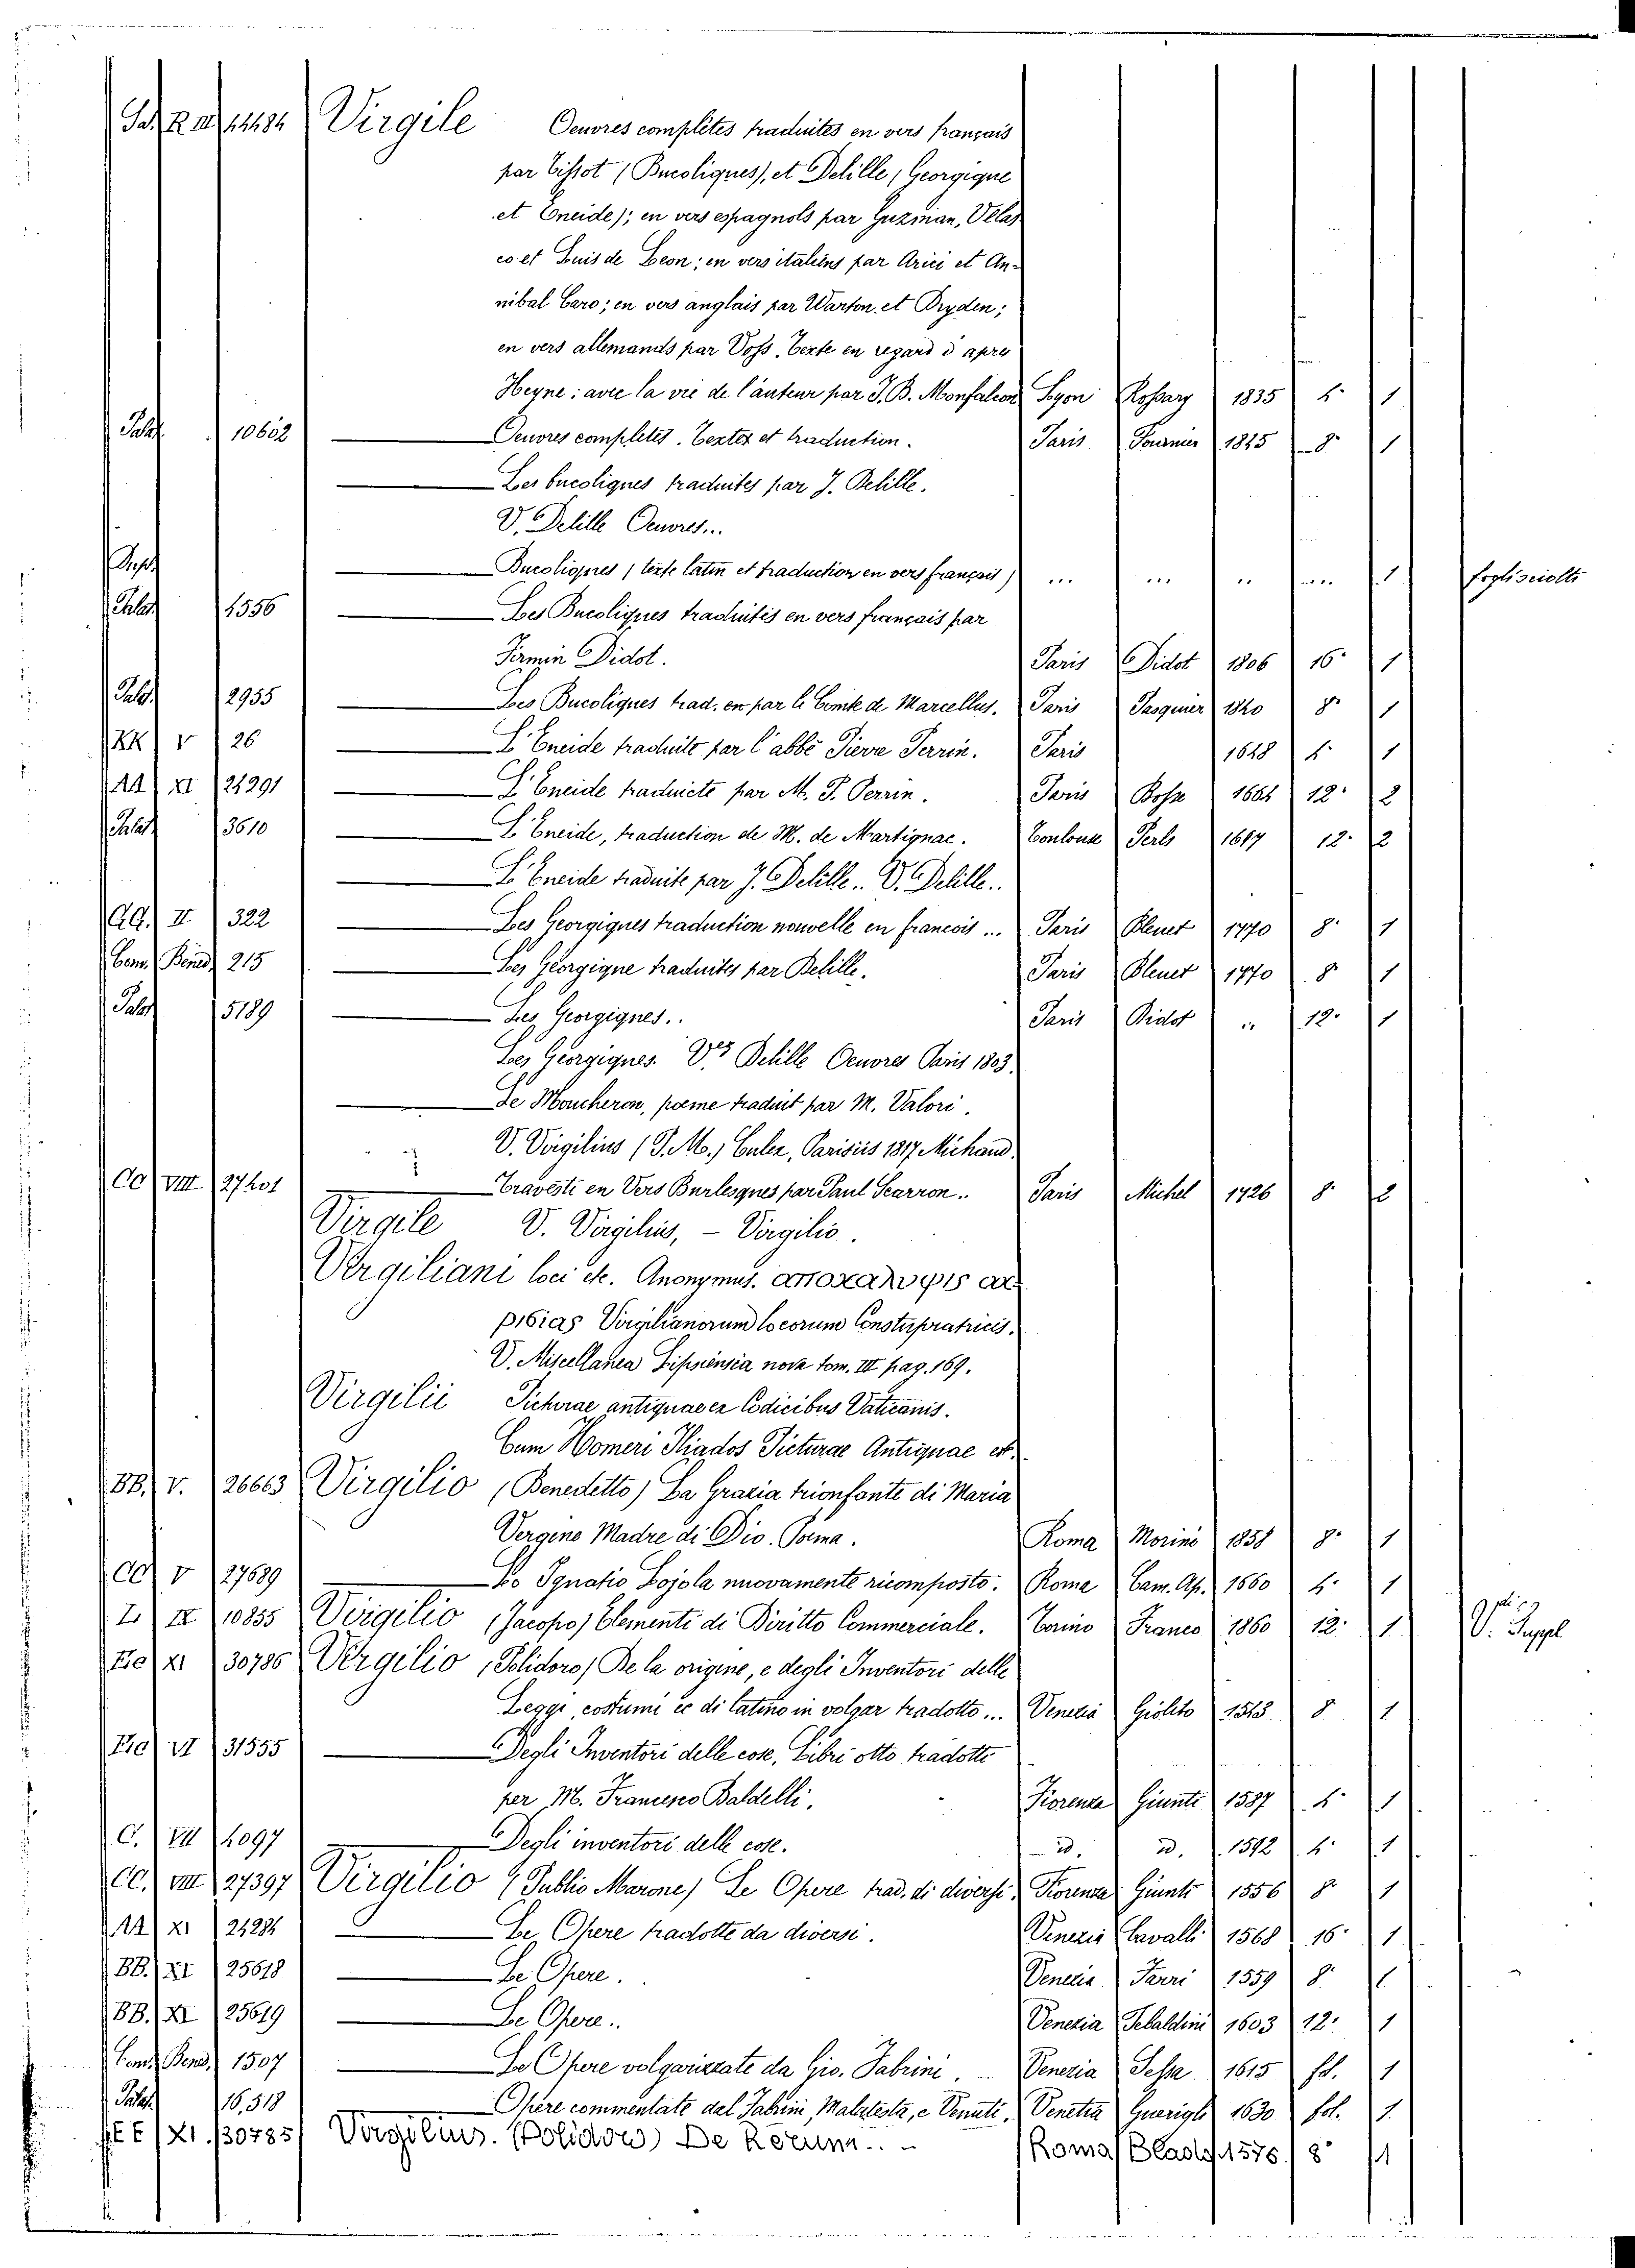 Virgile Oeuvres complètes traduites en vers français
par Tissot (Bucoliques), et Delille (Georgique
et Eneide); en vers espagnols par Guzman, Velas
co et Luis de Leon; en vers italiens par Arici et An-
nibal Caro; en vers anglais par Warton et Dryden;
en vers allemands par Voss. Texte en regard d'apre
Heyne: avec la vie de l'auteur par J. B. Monfalcon Lyon Rossary 1835 4° 1
Palat 10602 Oeuvres completes. Textes et traduction. Paris Fournier 1825 8° 1
Les bucoliques traduites par J. Delille.
V. Delille Oeuvres...
Bucoliques (texte latin et traduction en vers français) ... ... .. ... 1 foglisciolti
Palat 1556 Les Bucoliques traduites en vers français par
Firmin Didot. Paris Didot 1806 16° 1
Palat 2955 Les Bucoliques trad. en par le Comte de Marcellus. Paris Pasquier 1840 8° 1
XX V 26 L'Eneide traduite par l'abbé Pierre Perrin. Paris 1648 4° 1
AA XI 24291 L'Eneide traduicte par M. P. Perrin. Paris Bosse 1664 12° 2
Palat 3610 L'Eneide, traduction de M. de Martignac. Toulouse Perls 12° 2
L'Eneide traduite par J. Delille.. V. Delille..
GG. II 322 Les Georgiques traduction nouvelle en francois ... Paris Bleuet 1770 8° 1
Cam. Bened 215 Les Georgique traduites par Delille. Paris Bleuet 1770 8° 1
Palat 5189 Les Georgiques.. Paris Didot .. 12° 1
Les Georgiques. V.es Delille Oeuvres Paris 1803.
Le Moucheron, poeme traduit par M. Valori.
V. Virgilius (P. M.) Culex, Parisiis 1817 Michaud.
CC VIII 27401 Travesti en Vers Burlesques par Paul Scarron.. Paris Michel 1726 8° 2
Virgile V. Virgilius, - Virgilio.
Virgiliani loci etc. Anonymus.
Virgilianorum locorum Consturpratricis.
V. Miscellanea Lipsiensia nova tom. III pag. 169.
Virgilii Picturae antiquae ex Codicibus Vaticanis.
Cum Homeri Iliados Picturae Antiquae et.
BB. V. 26663 Virgilio (Benedetto) La Grazia trionfante di Maria
Vergine Madre di Dio. Poema. Roma Morini 1858 8° 1
CC V 27689 Ignatio Lojola nuovamente ricomposto. Roma Cam. Ap. 1660 4° 1
L IX 10855 Virgilio (Jacopo) Elementi di Diritto Commerciale. Torino Franco 1860 12° 1 V. Suppl
Ee XI 30786 Virgilio (Polidoro) De la origine, e degli Inventori delle
Leggi, costumi ec di latino in volgar tradotto ... Venezia Giolito 1543 8 1
Ee VI 31555 Degli Inventori delle cose, Libri otto tradotti
per M. Francesco Baldelli. Fiorenza Giunti 1587 4° 1
C. VII 4097 Degli inventori delle cose. id. id. 1592 4° 1
CC. VIII 27397 Virgilio (Publio Marone) Le Opere trad. di diversi. Fiorenza Giunti 1556 8° 1
AA XI 24284 Le Opere tradotte da diversi. Venezia Cavalli 1568 16° 1
BB. XI 25618 Le Opere. Venezia Farri 1559 8° 1
BB. XI 25619 Le Opere.. Venezia Tebaldini 1603 12° 1
Cam. Bened. 1507 Le Opere volgarizzate da Gio. Fabrini. Venezia Sessa 1615 fol. 1
Palat 16,518 Opere commentate dal Fabrini, Malatesta, e Venuti. Venetia Guerigli 1630 fol. 1.
EE XI. 30785 Virgilius. (Polidoro) De Rerum.. - Roma Blado 1576 8° 1